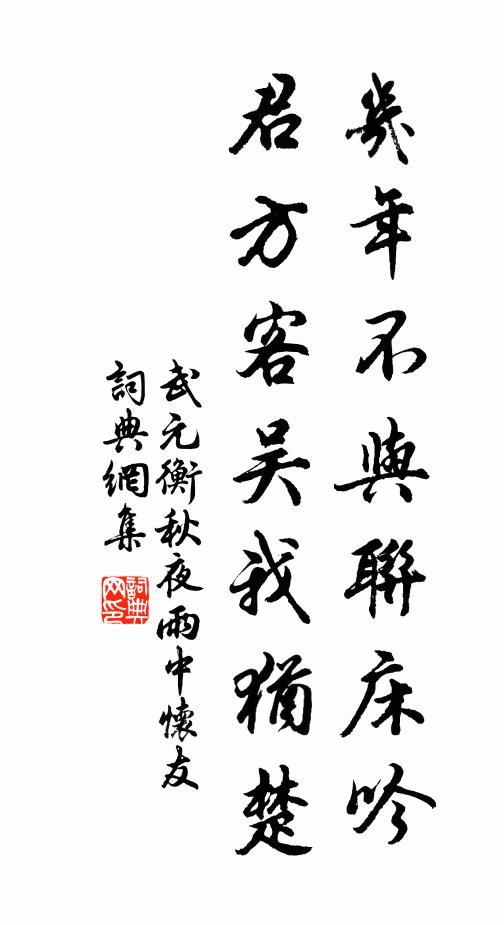 幾年不與聯床吟
君方客吴我猶楚
武元衡秋夜雨中懷友
詞典網集
詞典网印